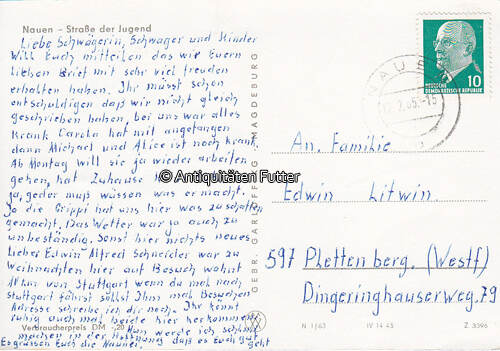 Nauen – Straße der Jugend
Liebe Schwägerin, Schwager und Kinder
Will Euch mitteilen das wir Euern
lieben Brief mit sehr viel freuden
erhalten haben. Ihr müsst schon
entschuldigen daß wir nicht gleich
geschrieben haben, bei uns war alles
Krank Carola hat mit angefangen
dann Michael und Alice ist noch krank.
Ab Montag will sie ja wieder arbeiten
gehen, hat Zuhause
ja, jeder muß wissen was er macht.
Ja die Grippi hat uns hier was zu schaffen
gemacht. Das Wetter war ja auch zu
unbeständig. Sonst hier nichts neues
Lieber Edwin Alfred Schneider war zu
Weihnachten hier auf Besuch wohnt
von Stuttgart wenn du mal nach
Stuttgart fährst sollst Ihm mal Besuchen
Adresse schreibe ich dir noch. Ihr könnt
ruhig auch mal beide hier herkommen
in der Hoffnung
Es grüssen Euch die Nauner. daß es Euch gut geht
Verbraucherpreis DM -,20
GEBR. GARLOFF KG, MAGDEBURG
© Antiquitäten Futter
NAUEN
10
DEUTSCHE
DEMOKRATISCHE REPUBLIK
An. Familie
Edwin Litwin.
597 Plettenberg. (Westf)
Dingeringhauserweg. 79
N 1/63 IV 14 45 Z 3396